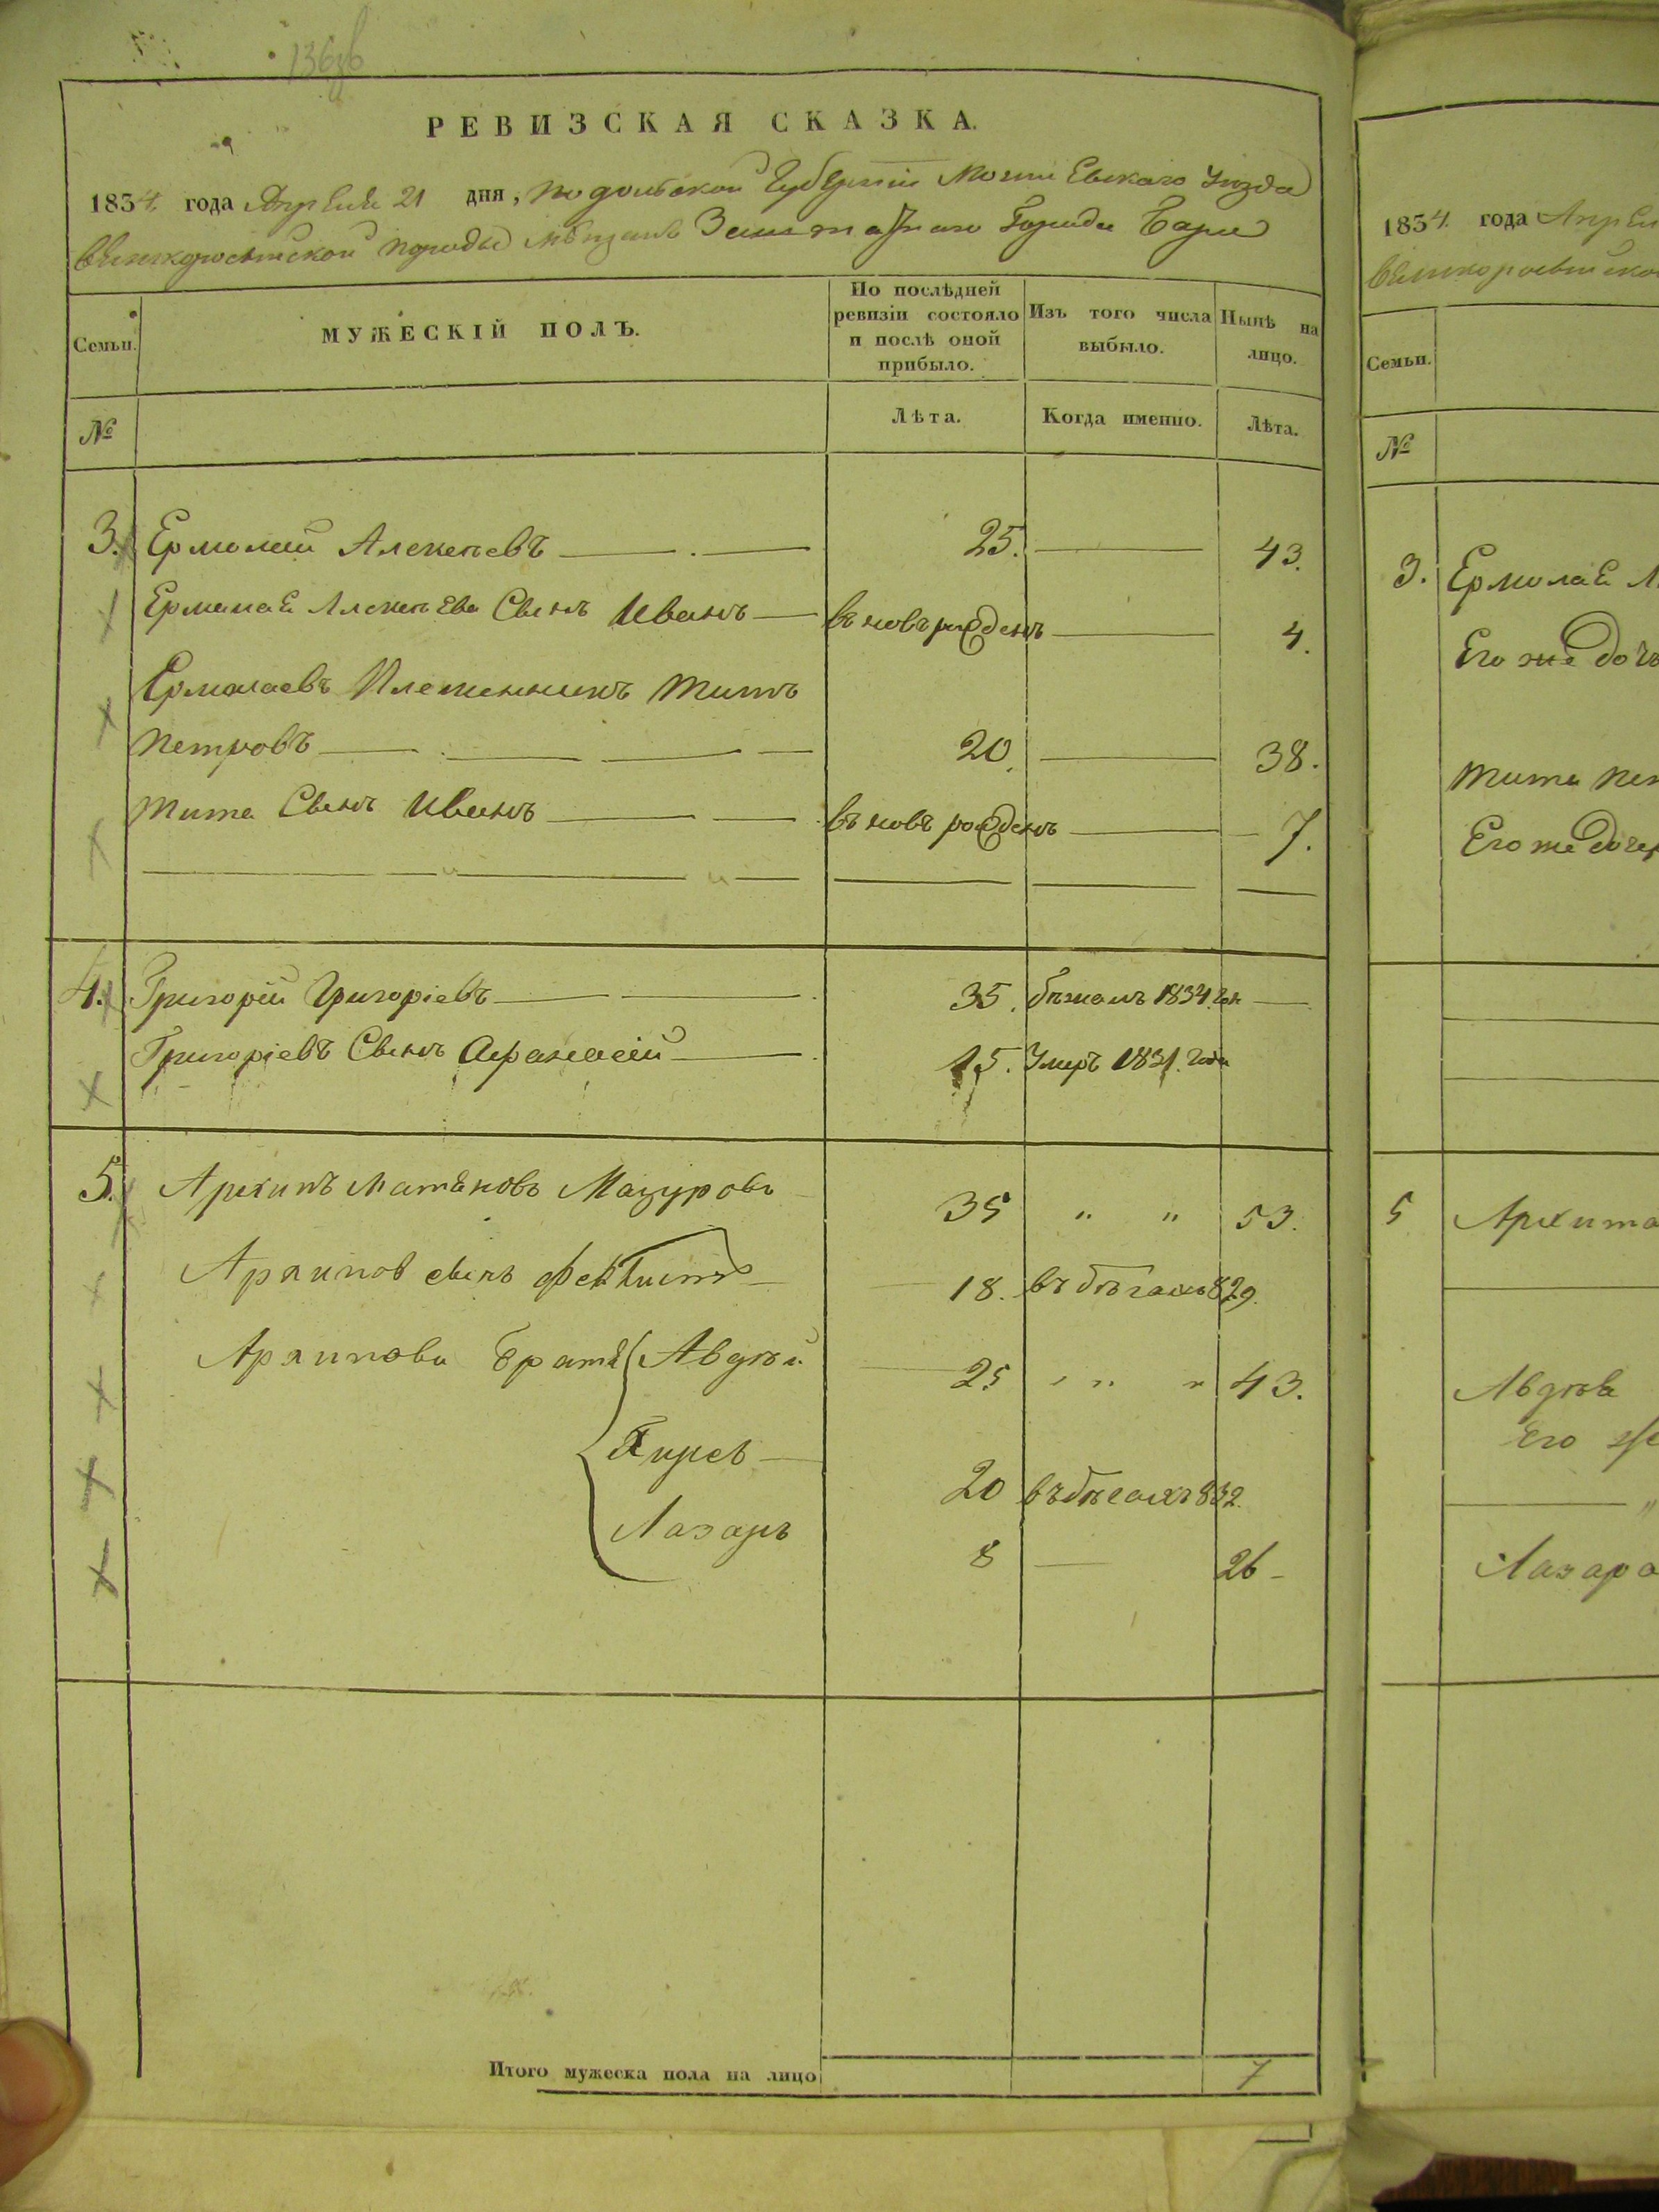 136об
РЕВИЗСКАЯ СКАЗКА.
1834. года Апреля 21 дня, Подольской Губернии Могилевскаго Уезда
великоросийской породы мещанъ Заштатнаго Города Бара
Семьи.
МУЖЕСКІЙ ПОЛЪ.
По послѣдней ревизіи состояло и послѣ оной прибыло.
Изъ того числа выбыло.
Нынѣ на лицо.
№
Лѣта.
Когда именно.
Лѣта.
3. Ермолай Алексеевъ 25. 43.
Ермолая Алексеева Сынъ Иванъ въ новъ рожденъ 4.
Ермолаевъ Племенникъ Титъ
Петровъ 20. 38.
Тита Сынъ Иванъ въ новъ рожденъ 7.
4. Григорій Григоріевъ 35. бѣжалъ 1834. го
Григоріевъ Сынъ Афанасій 15. Умеръ 1831. года
5. Архипъ Матѣновъ Мазуровъ 35 " " 53.
Архипов сынъ Феktистъ 18. въ бѣгахъ 829.
Архипова братя Авдѣй 25 " " " 43.
Кирей 20 въ бѣгахъ 832.
Лазарь 8 26
Итого мужеска пола на лицо 7
1834. года Апрел
великоросийско
Семьи.
№
3. Ермолая А
Его же дочь
Тита Пет
Его же дочер
5 Архипа
Авдѣя
Его же
"
Лазаря